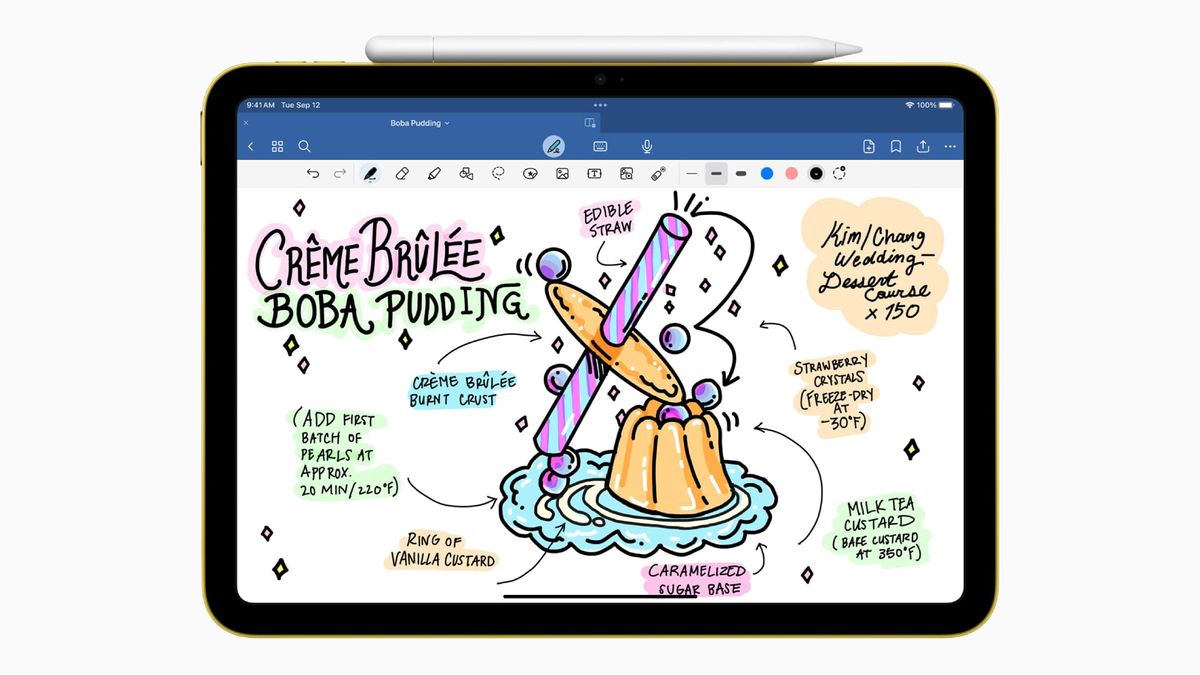 9:41 AM Tue Sep 12
100%
Boba Pudding
CRÊME BRÛLÉE
BOBA PUDDING
EDIBLE
STRAW
Kim/Chang
Wedding—
Dessert
Course
x 150
CRÈME BRÛLÉE
BURNT CRUST
STRAWBERRY
CRYSTALS
(FREEZE-DRY
AT
-30°F)
(ADD FIRST
BATCH OF
PEARLS AT
APPROX.
20 MIN/220°F)
RING OF
VANILLA CUSTARD
MILK TEA
CUSTARD
(BAKE CUSTARD
AT 350°F)
CARAMELIZED
SUGAR BASE